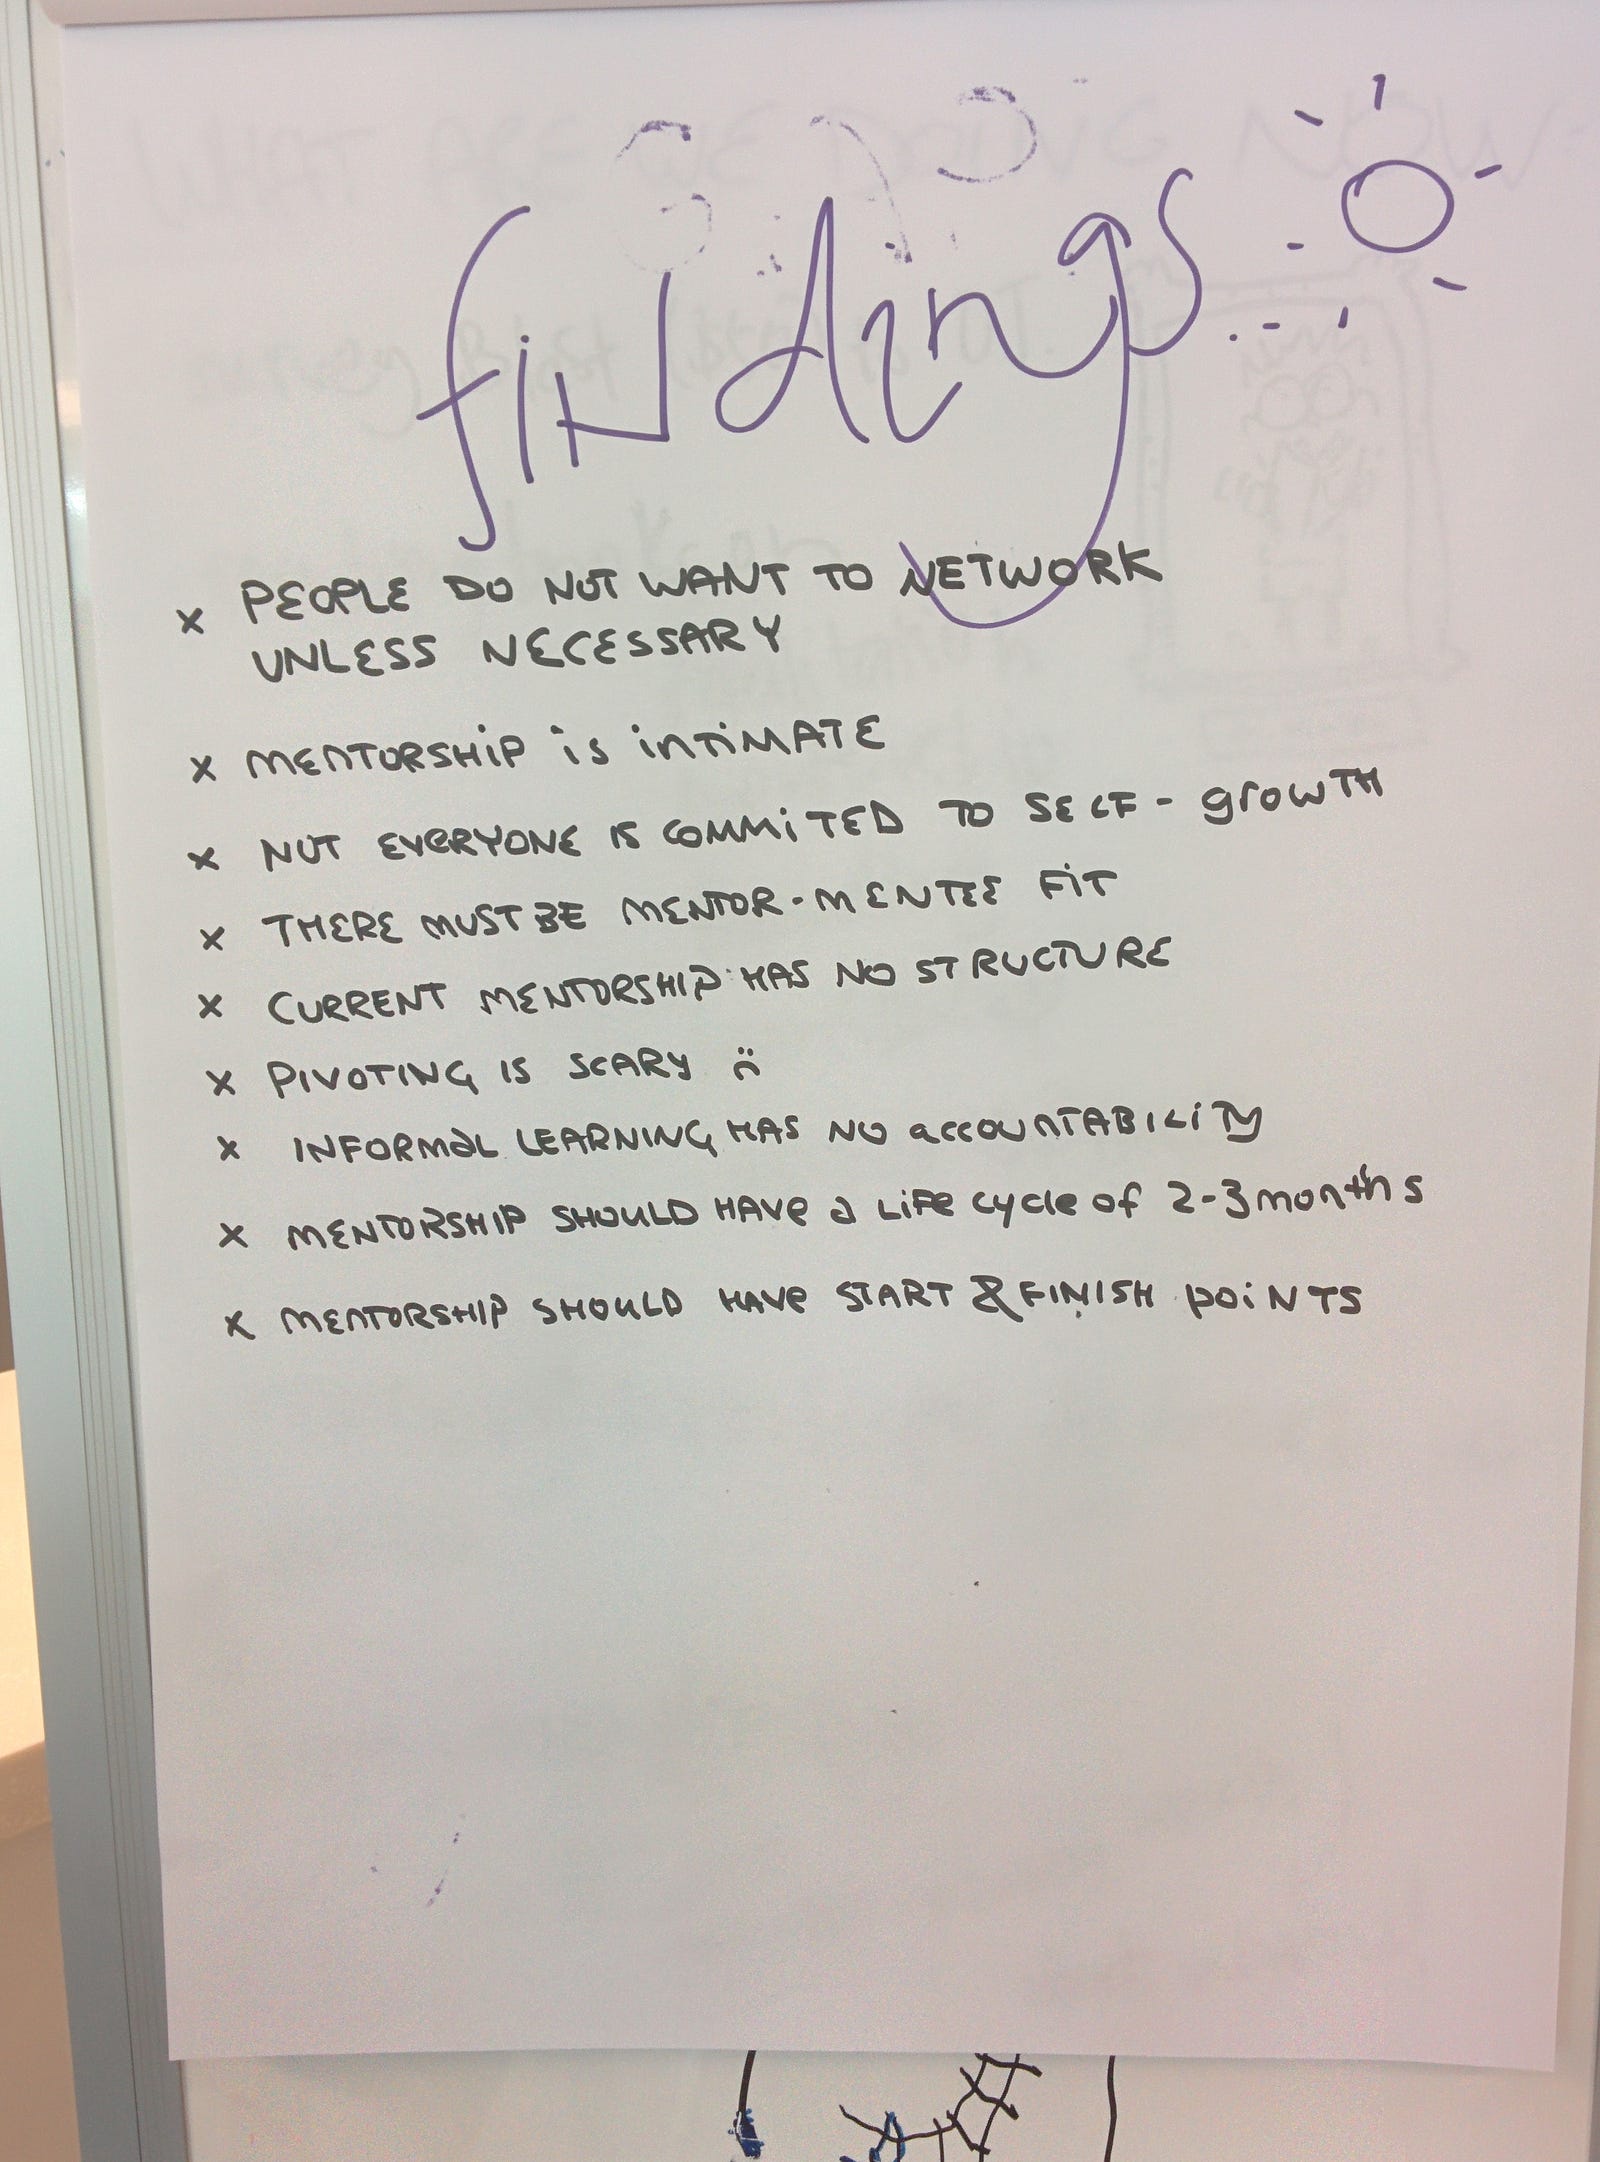 findings
x PEOPLE DO NOT WANT TO NETWORK
UNLESS NECESSARY
x MENTORSHIP is intiMATE
x NOT EVERYONE IS COMMITED TO SELF-growTH
x THERE MUST BE MENTOR-MENTEE FIT
x CURRENT MENTORSHIP HAS NO STRUCTURE
x PIVOTING IS SCARY ☹
x INFORMAL LEARNING HAS NO accountABILITY
x MENTORSHIP SHOULD HAVE a Life cycle of 2-3 months
x MENTORSHIP SHOULD HAVE START & FINISH POINTS